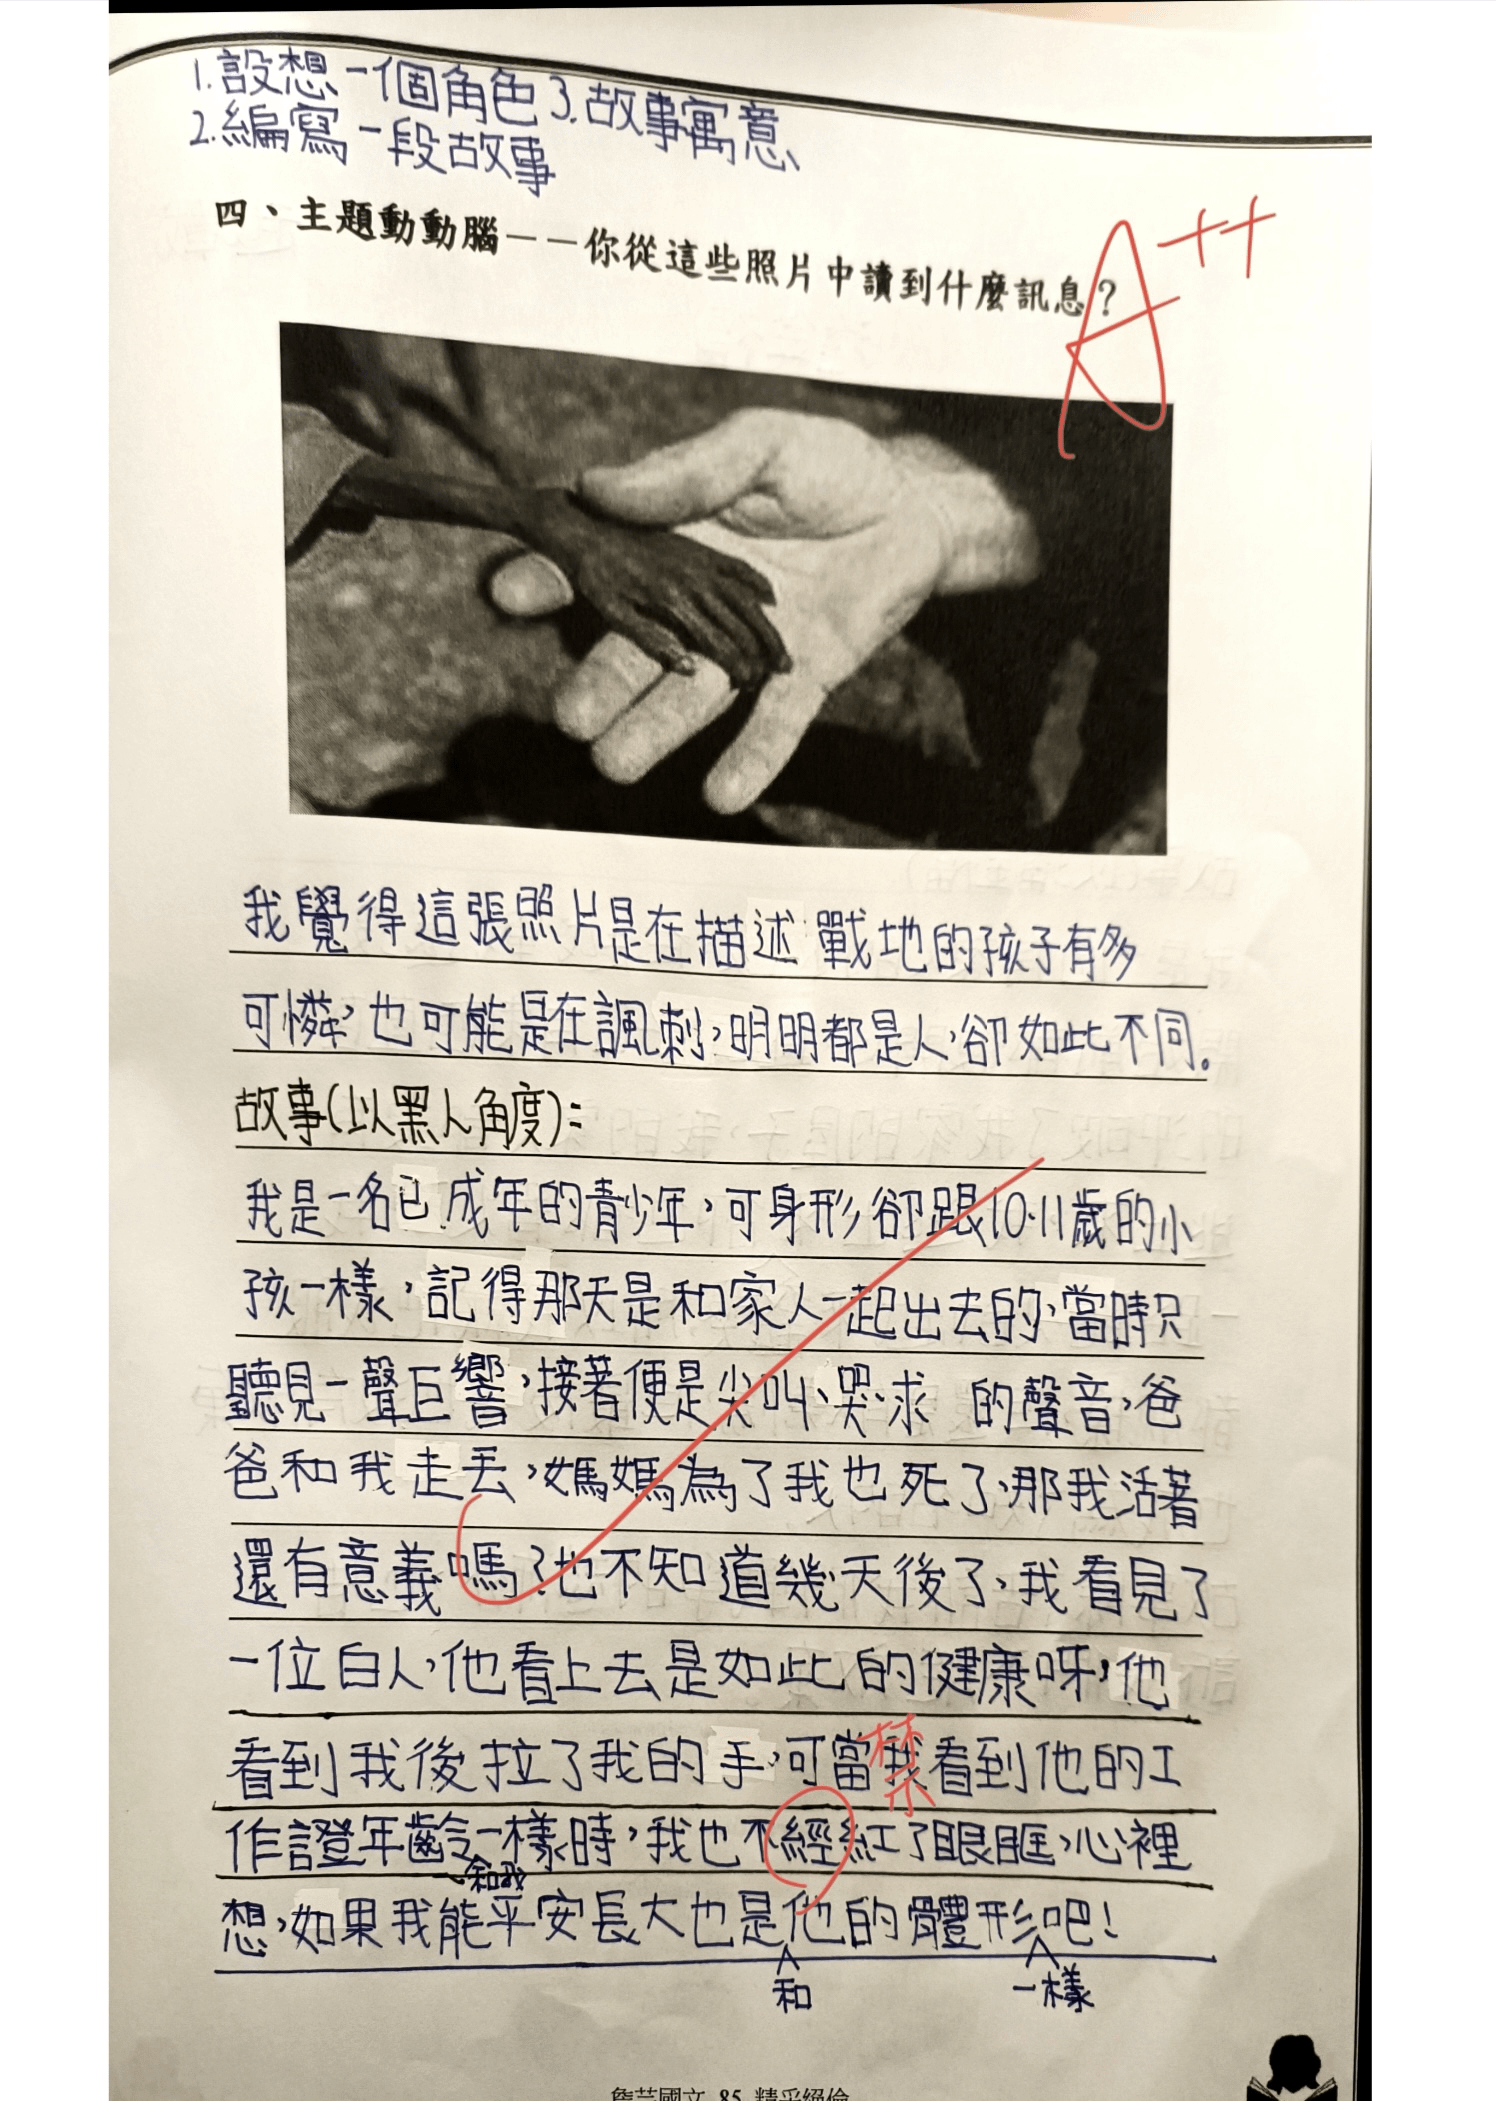 1.設想一個角色 3.故事寓意
2.編寫一段故事
四、主題動動腦——你從這些照片中讀到什麼訊息?
A++
我覺得這張照片是在描述戰地的孩子有多
可憐,也可能是在諷刺,明明都是人,卻如此不同。
故事(以黑人角度):
我是一名已成年的青少年,可身形卻跟10、11歲的小
孩一樣,記得那天是和家人一起出去的,當時只
聽見一聲巨響,接著便是尖叫、哭、求 的聲音,爸
爸和我走丟,媽媽為了我也死了,那我活著
還有意義嗎?也不知道幾天後了,我看見了
一位白人,他看上去是如此的健康呀,他
看到我後拉了我的手,可當我看到他的工
禁
作證年齡一樣時,我也不經紅了眼眶,心裡
和我
想,如果我能平安長大也是他的體形吧!
和 一樣
詹芸國文 85 精采絕倫